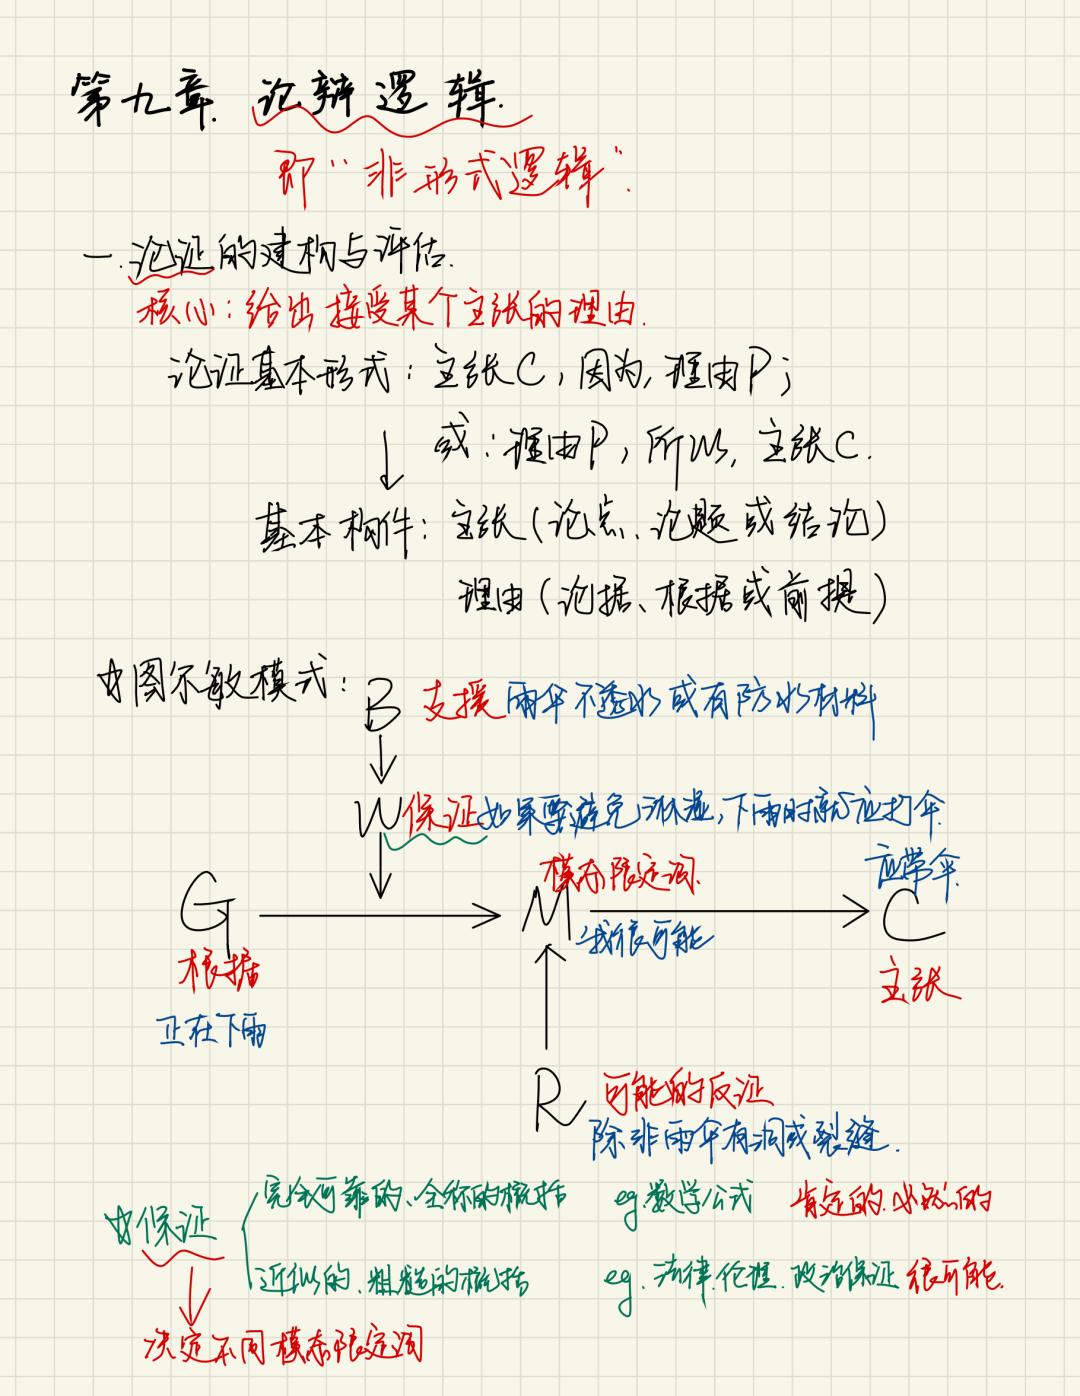 第九章.论辩逻辑.
即“非形式逻辑”.
一.论证的建构与评估.
核心:给出接受某个主张的理由.
论证基本形式:主张C,因为,理由P;
或:理由P,所以,主张C.
基本构件:主张(论点、论题或结论)
理由(论据、根据或前提)
☆图尔敏模式:
B 支援 雨伞不透水或有防水材料
W 保证 如果要避免淋湿,下雨时就应打伞.
模态限定词. 应带伞.
G M C
我很可能
根据 主张
正在下雨
R 可能的反证
除非雨伞有洞或裂缝.
完全可靠的、全称的概括 eg.数学公式 肯定的.必然的
☆保证
近似的、粗糙的概括 eg.法律.伦理.政治保证 很可能.
决定不同模态限定词